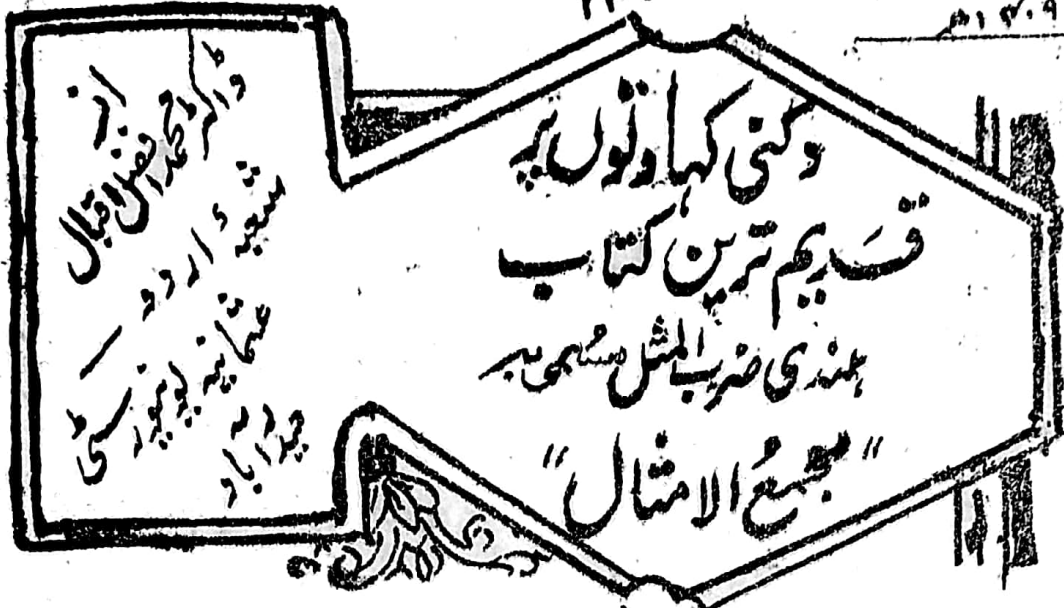 دکنی کہاوتوں پر
قدیم ترین کتاب
ہندی ضرب المثل مسمی بہ
"مجمع الامثال"
از
ڈاکٹر محمد افضل اقبال
شعبۂ اردو
عثمانیہ یونیورسٹی
حیدرآباد